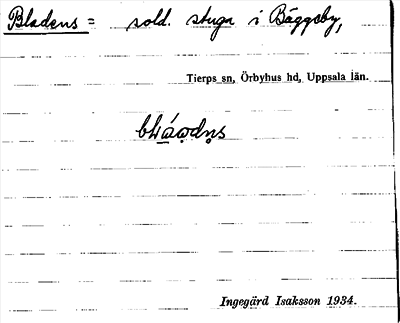 Bladens = sold. stuga i Bäggeby,
Tierps sn, Örbyhus hd, Uppsala län.
Ingegärd Isaksson 1934.